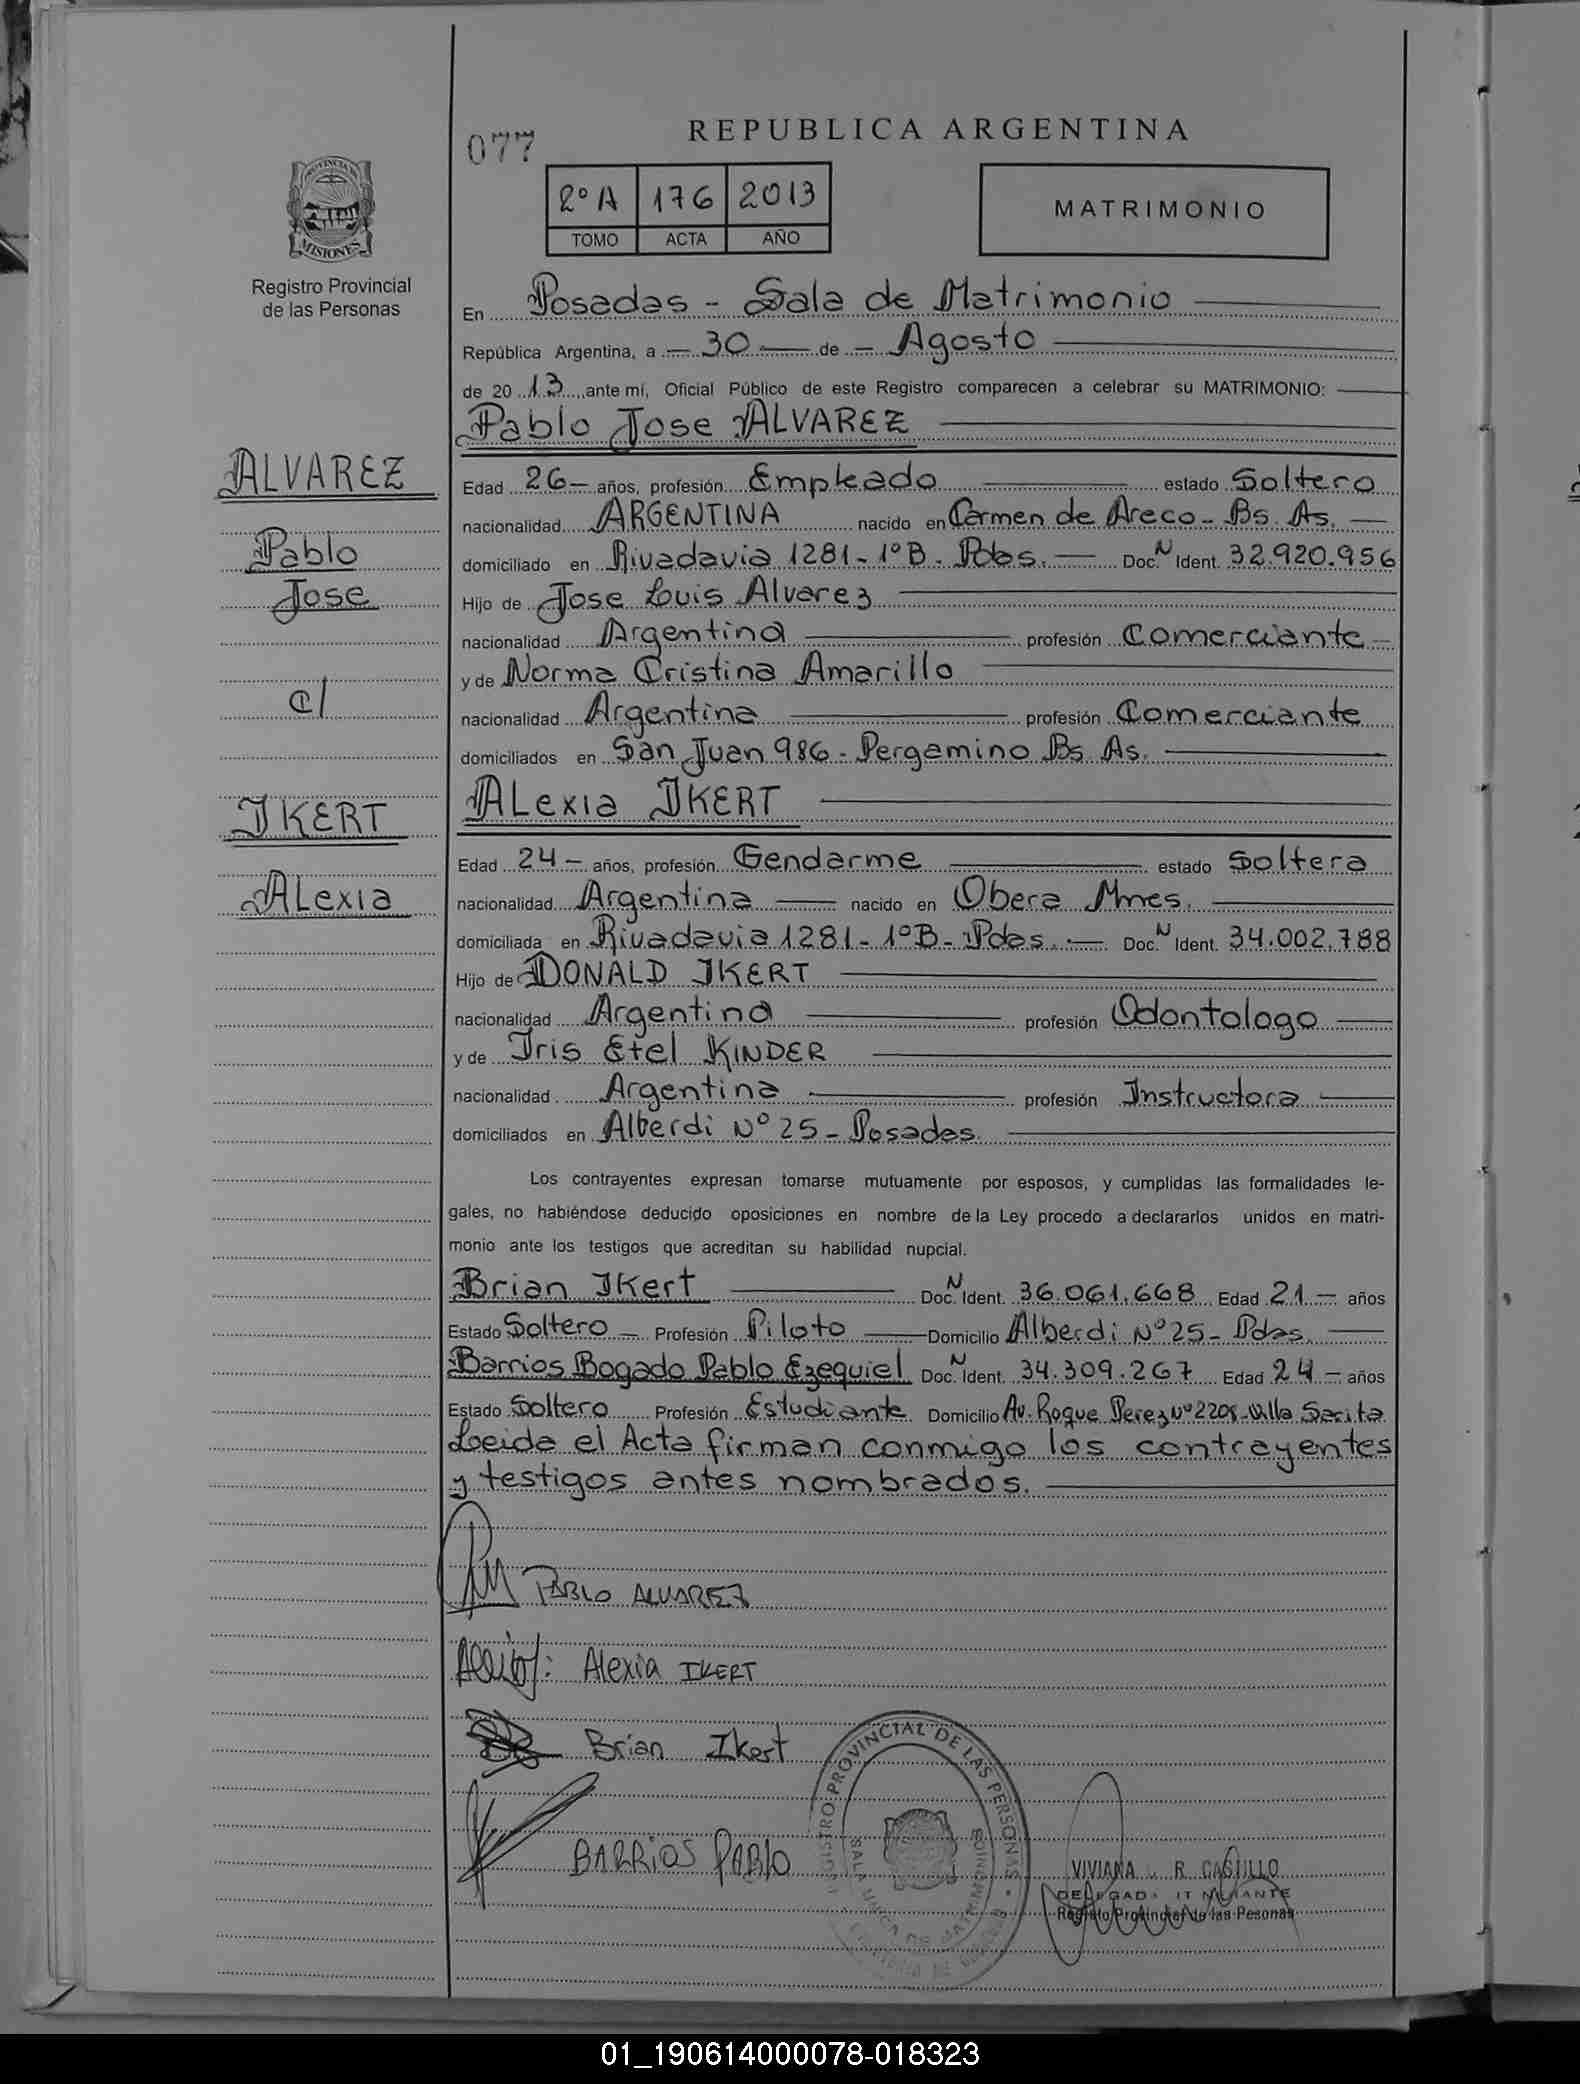 REPUBLICA ARGENTINA
077
2º A 176 2013
TOMO ACTA AÑO
MATRIMONIO
PROVINCIA
MISIONES
Registro Provincial
de las Personas
En Posadas - Sala de Matrimonio
República Argentina, a - 30 - de - Agosto
de 20 13 ante mí, Oficial Público de este Registro comparecen a celebrar su MATRIMONIO:
Pablo Jose ALVAREZ
ALVAREZ
Pablo
Jose
c/
IKERT
ALexia
Edad 26 - años, profesión Empleado estado Soltero
nacionalidad ARGENTINA nacido en Carmen de Areco - Bs. As. -
domiciliado en Rivadavia 1281 - 1º B. Pdas. - Doc. N Ident. 32.920.956
Hijo de Jose Luis Alvarez
nacionalidad Argentina profesión Comerciante -
y de Norma Cristina Amarillo
nacionalidad Argentina profesión Comerciante
domiciliados en San Juan 986 - Pergamino Bs. As.
ALexia IKERT
Edad 24 - años, profesión Gendarme estado Soltera
nacionalidad Argentina - nacido en Obera Mnes.
domiciliada en Rivadavia 1281 - 1º B - Pdas. - Doc. N Ident. 34.002.788
Hijo de DONALD IKERT
nacionalidad Argentina profesión Odontologo
y de Iris Etel KINDER
nacionalidad Argentina profesión Instructora
domiciliados en Alberdi Nº 25 - Posadas.
Los contrayentes expresan tomarse mutuamente por esposos, y cumplidas las formalidades le-
gales, no habiéndose deducido oposiciones en nombre de la Ley procedo a declararlos unidos en matri-
monio ante los testigos que acreditan su habilidad nupcial.
Brian Ikert Doc. N Ident. 36.061.668 Edad 21 - años
Estado Soltero - Profesión Piloto Domicilio Alberdi Nº 25 - Pdas.
Barrios Bogado Pablo Ezequiel Doc. N Ident. 34.309.267 Edad 24 - años
Estado Soltero Profesión Estudiante Domicilio Av. Roque Perez Nº 2208 - Villa Sarita
Leida el Acta firman conmigo los contrayentes
y testigos antes nombrados.
PABLO ALVAREZ
Alexia IKERT
Brian Ikert
BARRIOS PABlO
REGISTRO PROVINCIAL DE LAS PERSONAS
SALA UNICA DE MATRIMONIOS
VIVIANA R. CASTILLO
Registro Provincial de las Pesonas
01_190614000078-018323